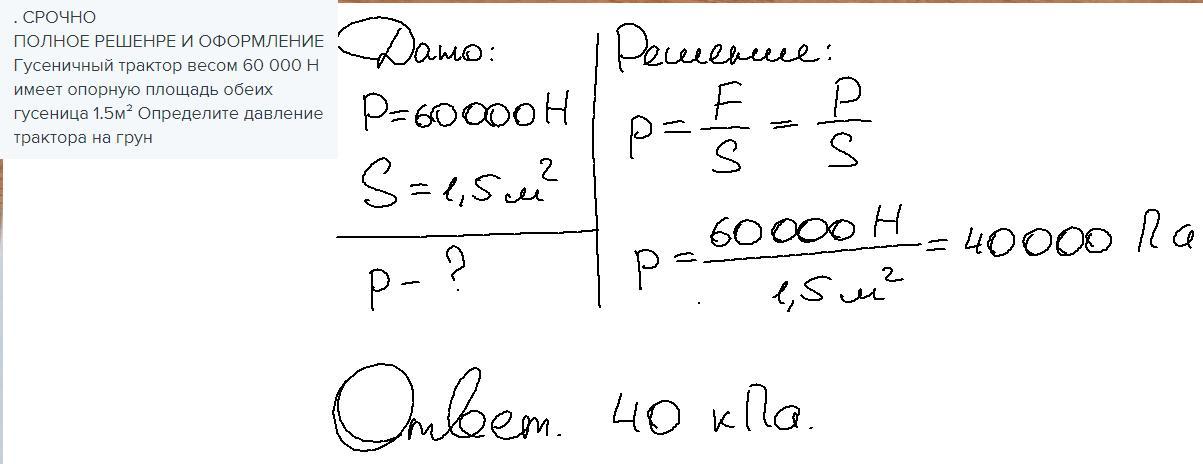 . СРОЧНО
ПОЛНОЕ РЕШЕНРЕ И ОФОРМЛЕНИЕ
Гусеничный трактор весом 60 000 Н
имеет опорную площадь обеих
гусеница 1.5м² Определите давление
трактора на грун
Дано:
P=60000Н
S=1,5м²
p-?
Решение:
p=F/S=P/S
p=60000 Н/1,5м²=40000 Па
Ответ. 40 кПа.